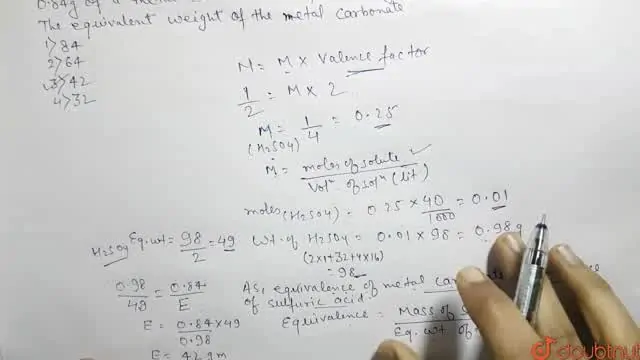 0.84g of a metal
The equivalent weight of the metal carbonate
1> 84
2> 64
3> 42
4> 32
N = M × Valence factor
1/2 = M × 2
M = 1/4 = 0.25
(H2SO4)
M = moles of solute / Vol^n of sol^n (lit)
moles (H2SO4) = 0.25 × 40/1000 = 0.01
H2SO4 Eq. wt = 98/2 = 49 Wt. of H2SO4 = 0.01 × 98 = 0.98 g
(2×1+32+4×16)
= 98
0.98/49 = 0.84/E
As, equivalence of metal
of sulfuric acid.
E = 0.84 × 49 / 0.98
Equivalence = Mass of / Eq. wt of
E = 42 gm
doubtnut